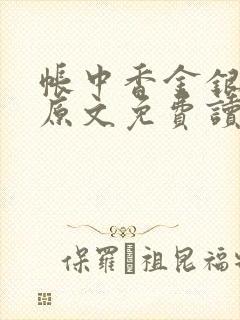 帳中香金銀
原文免費讀
保羅 祖昆福